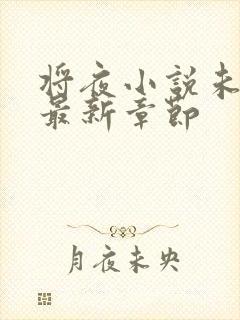 将夜小说未
最新章节
月夜未央